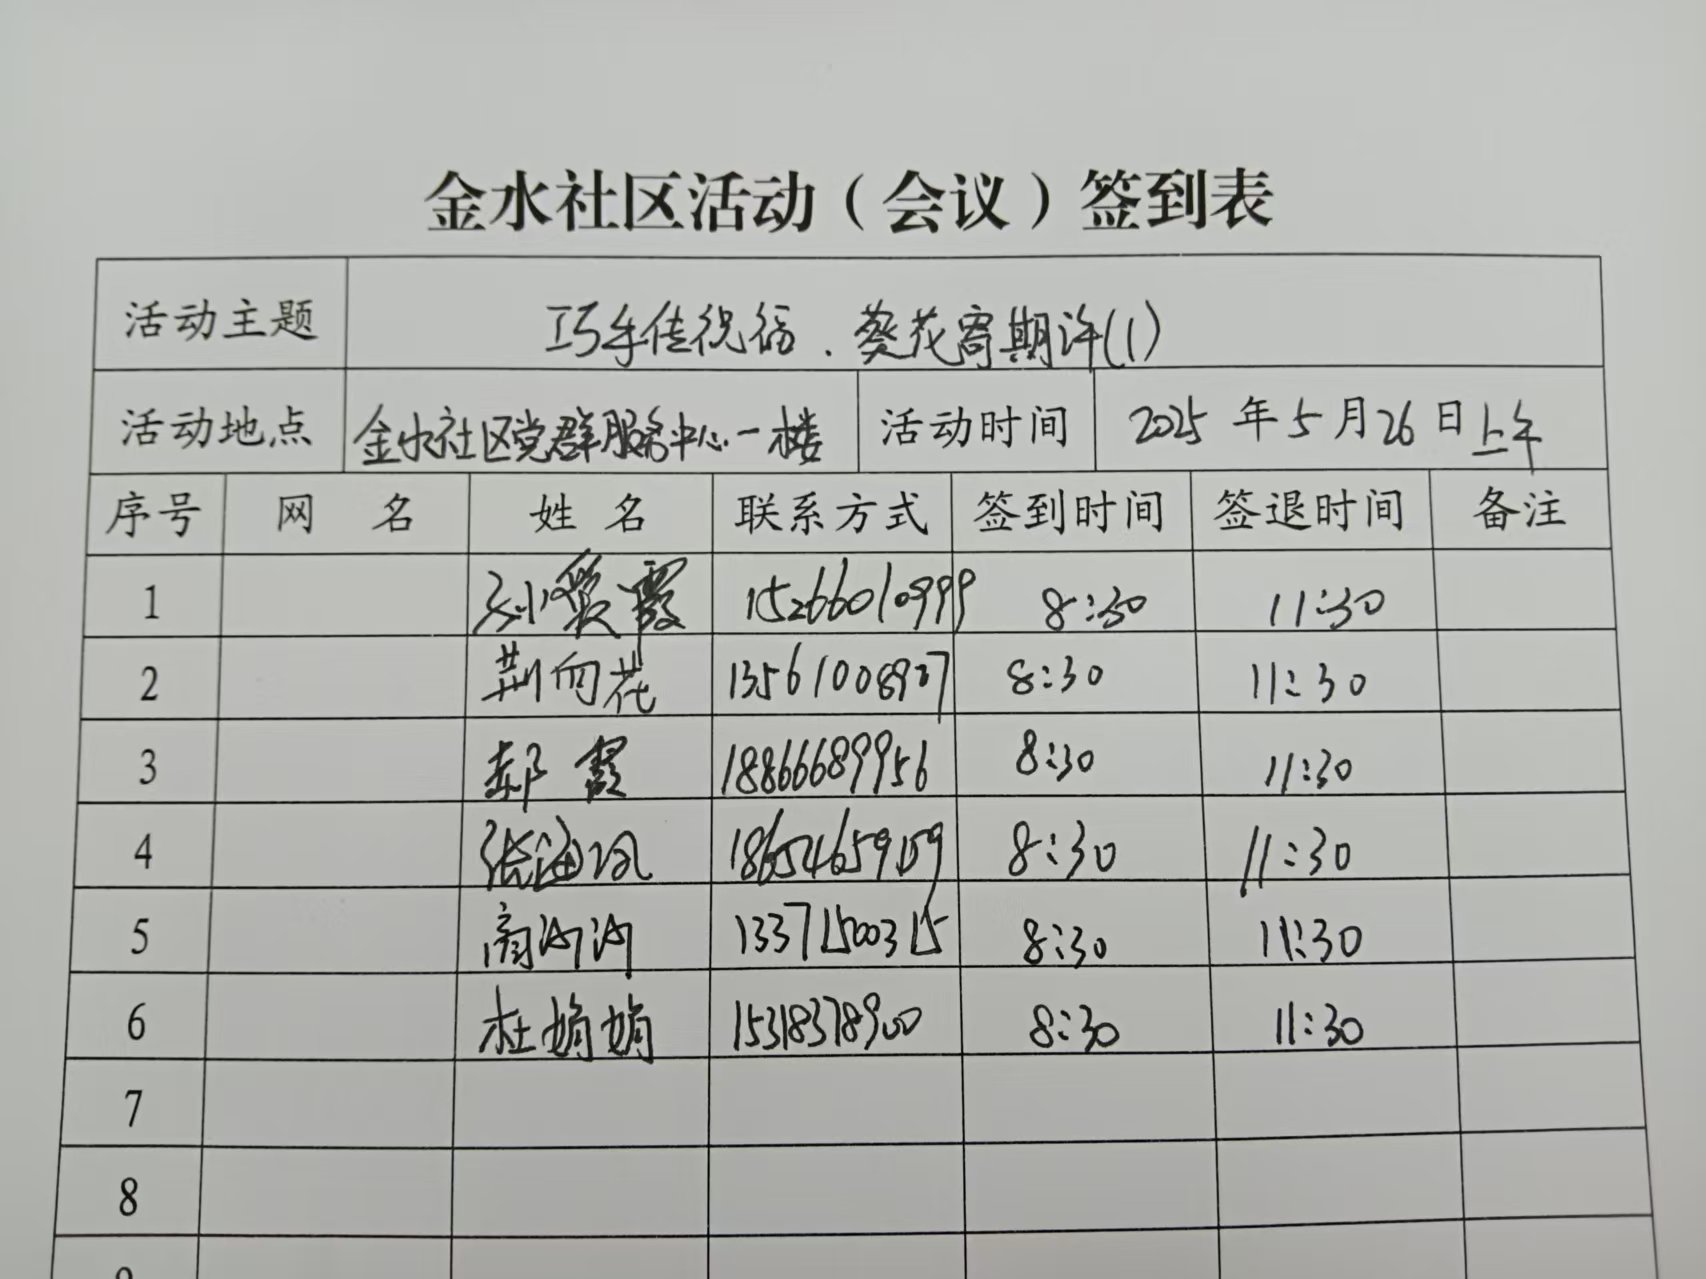 金水社区活动（会议）签到表
活动主题 巧手传祝福．葵花寄期许(1)
活动地点 金水社区党群服务中心一楼 活动时间 2025年5月26日上午
序号 网 名 姓 名 联系方式 签到时间 签退时间 备注
1 刘爱霞 15266010999 8:30 11:30
2 荆向花 13561008927 8:30 11:30
3 郝霞 18866689956 8:30 11:30
4 张海凤 18654659159 8:30 11:30
5 商沙沙 13371500315 8:30 11:30
6 杜娟娟 15318378900 8:30 11:30
7
8